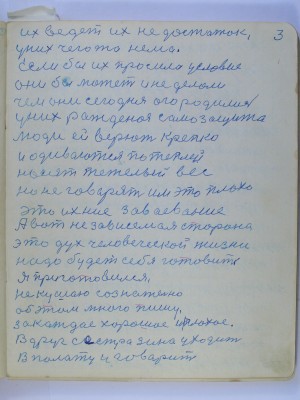 3
их ведет их недостаток,
у них чегото нема.
Если бы их просила условие
они бы может и не делали
чем они сегодня огородились
у них рожденая самозащита
люди ей верют крепко
и одиваются потеплей
имеят тежелый вес
но не говорят им это плохо
это ихние заваевание
А вот независемая сторона
это дух человеческой жизни
надо будет себя готовить
Я приготовился,
не кушаю сознательно
об этом много пишу,
за каждае хорошае и плохое.
Вдруг сестра зина уходит
В палату и говарит